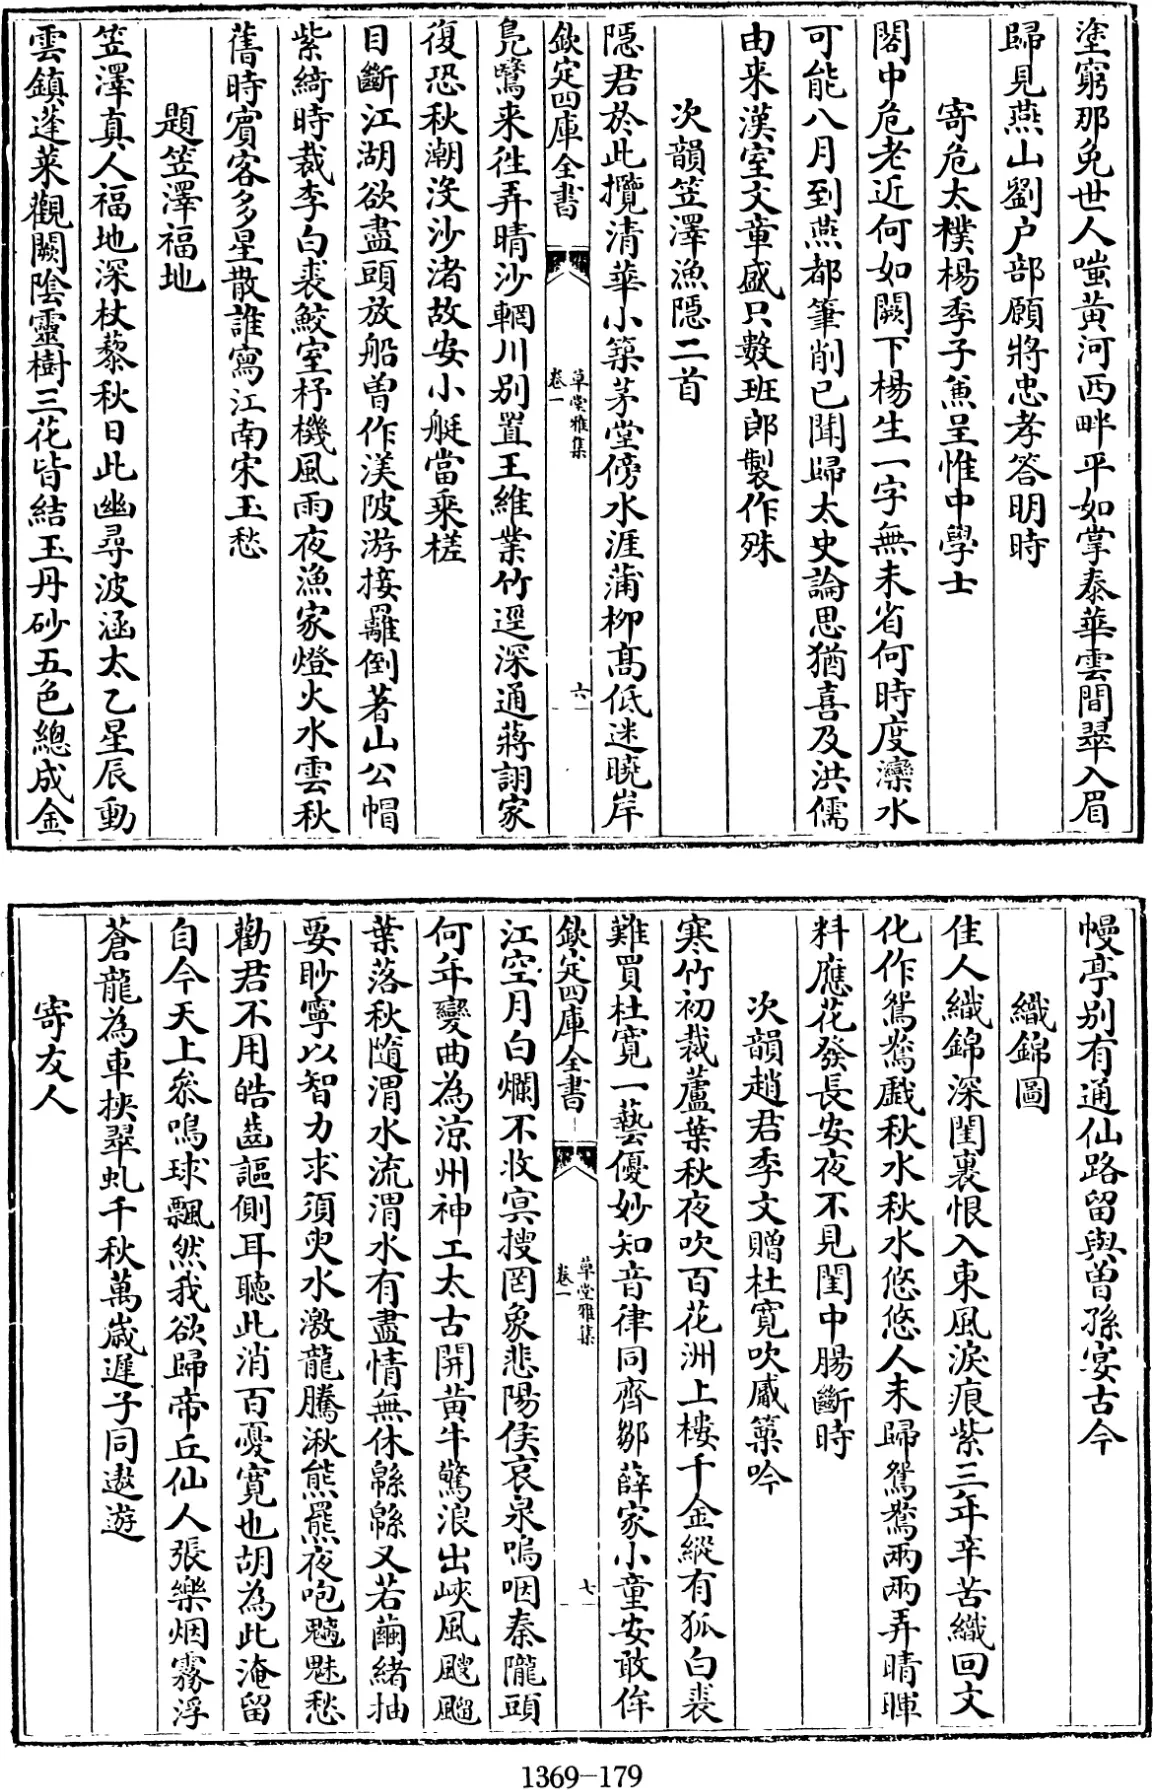 塗窮那免世人嗤黄河西畔平如掌泰華雲間翠入眉
歸見燕山劉户部願將忠孝答明時
寄危太樸楊季子兼呈惟中學士
閣中危老近何如闕下楊生一字無未省何時度灤水
可能八月到燕都筆削已聞歸太史論思猶喜及洪儒
由来漢室文章盛只數班郎製作殊
次韻笠澤漁隠二首
隠君於此攬清華小築茅堂傍水涯蒲柳髙低迷曉岸
欽定四庫全書
草堂雅集
卷一
六
凫鷺来往弄晴沙輞川别置王維業竹逕深通蔣詡家
復恐秋潮没沙渚故安小艇當乗槎
目斷江湖欲盡頭放船曽作渼陂游接䍦倒著山公帽
紫綺時裁李白裘鮫室杼機風雨夜漁家燈火水雲秋
舊時賓客多星散誰寫江南宋玉愁
題笠澤福地
笠澤真人福地深杖藜秋日此幽尋波涵太乙星辰動
雲鎮蓬莱觀闕陰靈樹三花皆結玉丹砂五色總成金
幔亭别有通仙路留與曽孫宴古今
織錦圖
佳人織錦深閨裏恨入東風淚痕紫三年辛苦織回文
化作鴛鴦戯秋水秋水悠悠人未歸鴛鴦兩兩弄晴暉
料應花發長安夜不見閨中腸斷時
次韻趙君季文贈杜寛吹觱篥吟
寒竹初裁蘆葉秋夜吹百花洲上樓千金縱有狐白裘
難買杜寛一藝優妙知音律同齊鄒薛家小童安敢侔
欽定四庫全書
草堂雅集
卷一
七
江空月白爛不收冥搜罔象悲陽侯哀泉嗚咽秦隴頭
何年變曲為涼州神工太古開黄牛驚浪出峽風颼飀
葉落秋隨渭水流渭水有盡情無休緜緜又若繭緒抽
要眇寧以智力求須臾水激龍騰湫熊羆夜咆魑魅愁
勸君不用皓齒謳側耳聽此消百憂寛也胡為此淹留
自今天上叅鳴球飄然我欲歸帝丘仙人張樂烟霧浮
蒼龍為車挾翠虬千秋萬歲遲子同遨遊
寄友人
1369-179